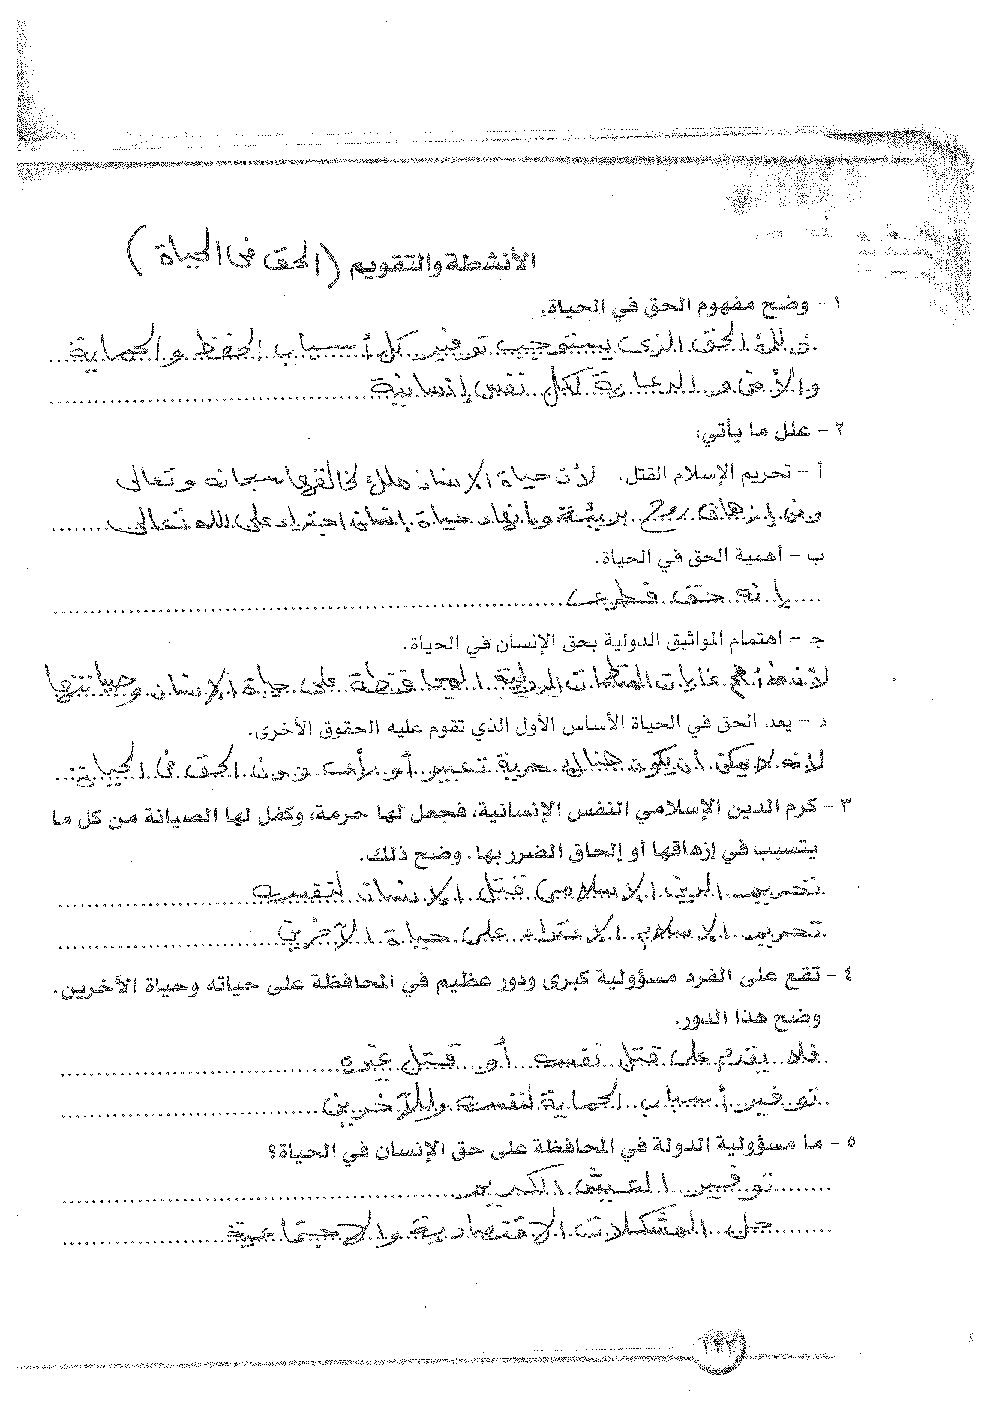 الأنشطة والتقويم (الحق في الحياة)
١ - وضح مفهوم الحق في الحياة.
ذلك الحق الذي يستوجب توفير كل أسباب الحفظ والحماية
والأمن و الرعاية لكل نفس إنسانية
٢ - علل ما يأتي:
أ - تحريم الإسلام القتل. لأن حياة الانسان ملك لخالقها سبحانه وتعالى
ومن إزهاق روح بريئة وإنهاء حياة إنسان اجتراء على الله تعالى
ب - أهمية الحق في الحياة.
إنه حق فطري
جـ - اهتمام المواثيق الدولية بحق الإنسان في الحياة.
لأنه أهم غايات المنظمات الدولية المحافظة على حياة الإنسان وصيانتها
د - يعد الحق في الحياة الأساس الأول الذي تقوم عليه الحقوق الأخرى.
لأنه لا يمكن أن يكون هناك حرية تعبير أو رأي دون الحق في الحياة
٣ - كرم الدين الإسلامي النفس الإنسانية، فجعل لها حرمة، وكفل لها الصيانة من كل ما
يتسبب في إزهاقها أو إلحاق الضرر بها. وضح ذلك.
تحريم الدين الإسلامي قتل الانسان لنفسه
تحريم الإسلام الاعتداء على حياة الآخرين
٤ - تقع على الفرد مسؤولية كبرى ودور عظيم في المحافظة على حياته وحياة الآخرين.
وضح هذا الدور.
فلا يقدم على قتل نفسه أو قتل غيره
توفير أسباب الحماية لنفسه وللآخرين
٥ - ما مسؤولية الدولة في المحافظة على حق الإنسان في الحياة؟
توفير العيش الكريم
حل المشكلات الاقتصادية والاجتماعية